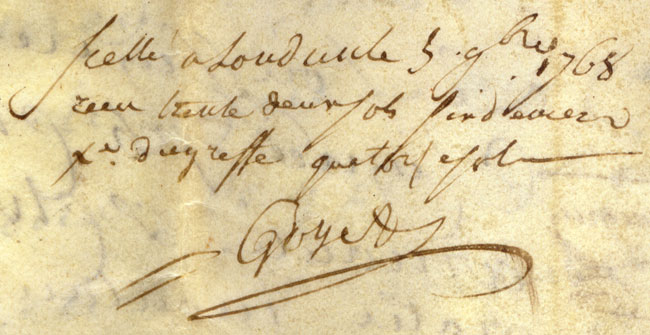 scellé a Loudun le 5 9bre 1768
receu trente deux sols six deniers
xe. du greffe quatorse sols
Goyet